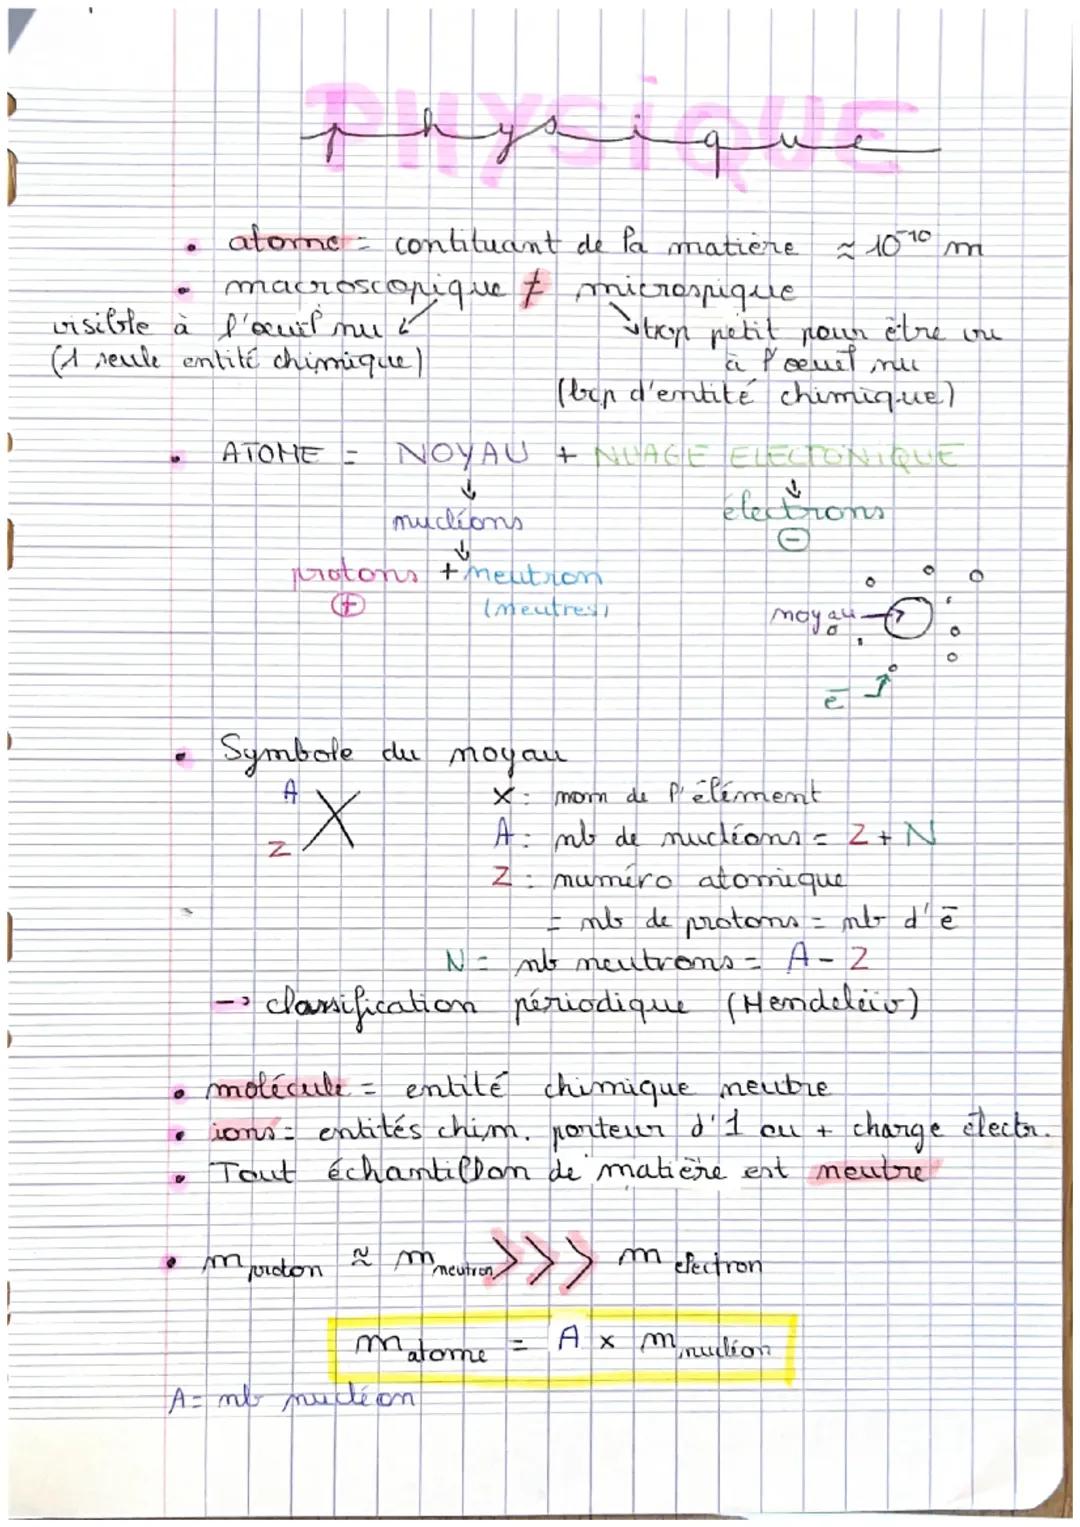 PHYSIQUE
physique
• atome = contituant de la matière ≈ 10⁻¹⁰ m
• macroscopique ≠ microspique
visible à l'oeuil nu
(1 seule entité chimique)
trop petit pour être vu
à l'oeuil nu
(bcp d'entité chimique)
• ATOME = NOYAU + NUAGE ELECTONIQUE
nucléons
électrons
⊖
protons + neutron
⊕ (neutres)
noyau →
e̅
• Symbole du noyau
A
Z X
X : nom de l'élément
A : nb de nucléons = Z + N
Z : numéro atomique
= nb de protons = nb d'e̅
N = nb neutrons = A - Z
→ classification périodique (Mendeleïv)
• molécule = entité chimique neutre
• ions = entités chim. porteur d'1 ou + charge électr.
• Tout échantillon de matière est neutre
• m proton ≈ m neutron >>> m électron
m atome = A × m nucléon
A = nb nucléon